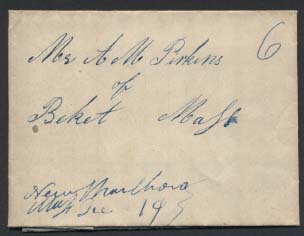 Mr A M Perkins 6
of
Beket Mass
New Marlboro
Mass Dec 19